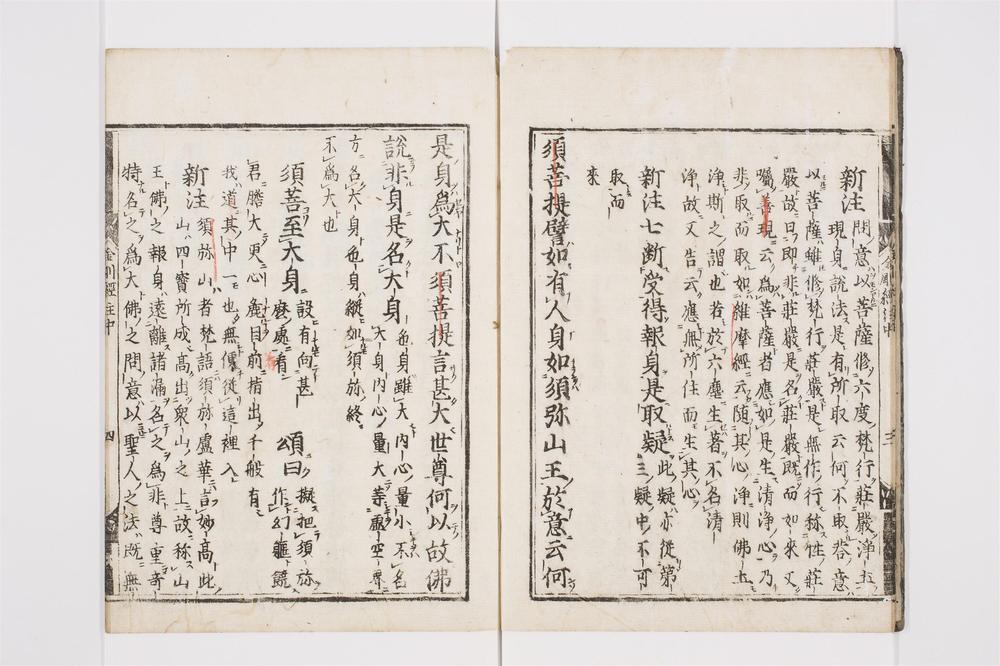 新注 問意以菩薩修六度梵行莊嚴淨土
現身說法是有所取云何不取荅意
以菩薩雖修梵行莊嚴是無作行称性莊
嚴故曰即非莊嚴是名莊嚴既而如來又
囑善現云爲菩薩者應如是生清淨心乃
非取而取如維摩經云随其心淨則佛土
淨斯之謂也若於六塵生著不名清
淨故又告云應無所住而生其心
新注七断受得報身是取疑 此疑亦從第
三疑中不可
取而
來
須菩提譬如有人身如須弥山王於意云何
是身爲大不須菩提言甚大世尊何以故佛
說非身是名大身 色身雖大内心量小不名
大身内心量大等虛空界
方名大身色身縱如須弥終
不爲大也
須菩至大身 設有向甚
麽處有 頌曰 擬把須弥
作幻軀饒
君膽大更心麁目前指出千般有
我道其中一也無便從這裡入
新注 須弥山者梵語須弥盧華言妙高此
山四寳所成高出衆山之上故称山
王佛之報身遠離諸漏名之爲非尊重奇
特名之爲大佛之問意以聖人之法既無
金川經註中
四
三